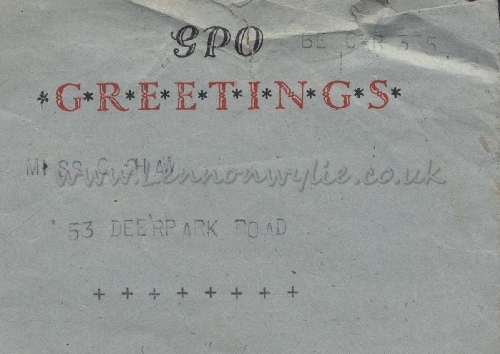 GPO
*G*R*E*E*T*I*N*G*S*
MISS
www.Lennonwylie.co.uk
53 DEERPARK ROAD
+ + + + + + + +